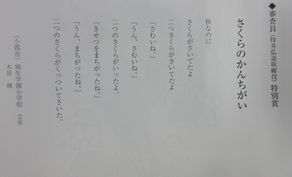 ◆審査員(待井弘道取締役)特別賞
さくらのかんちがい
秋なのに
さくらがさいてたよ
二つさくらがさいてたよ
「さむいね。」
「うん、さむいね。」
二つのさくらがいったよ。
「きせつをまちがったね。」
「うん、まちがったね。」
二つのさくらがくっついてさいた。
(小郡市)麻生学園小学校 2年